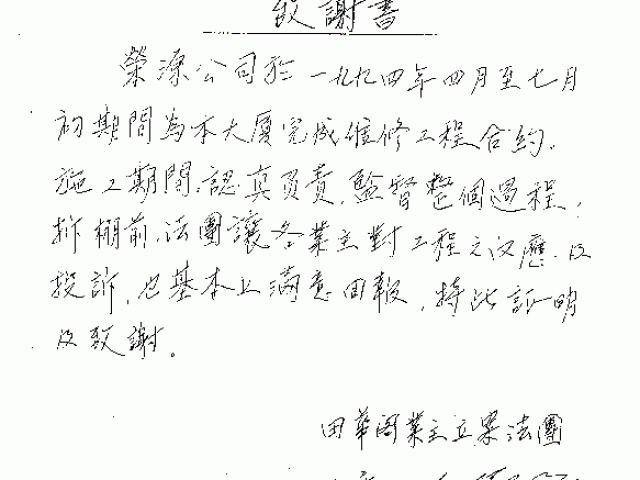 致謝書
榮源公司於一九九四年四月至七月
初期間為本大廈完成維修工程合約．
施工期間，認真負責，監督整個過程，
拆棚前，法團讓各業主對工程之反應．及
投訴，也基本上滿意回報，特此証明
及致謝。
田華閣業主立案法團